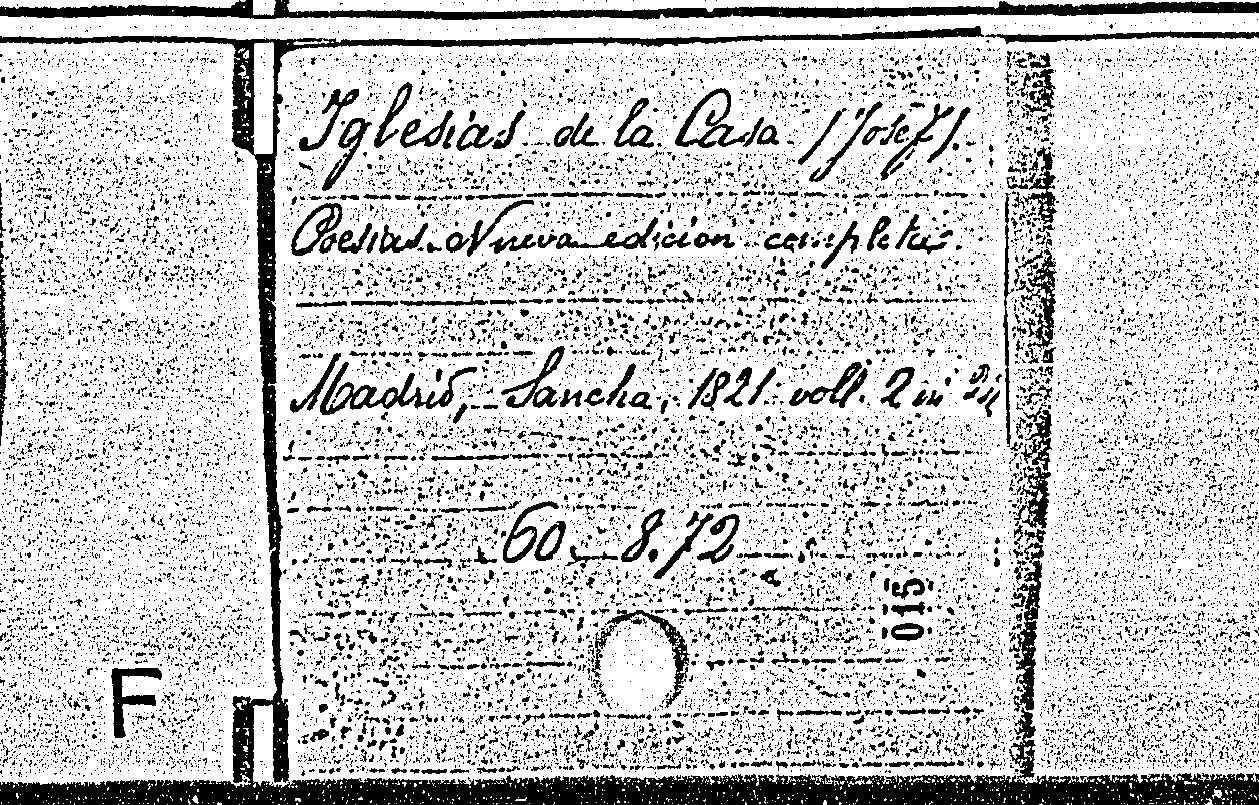 Iglesias de la Casa (Josef).
Poesias. Nueva edicion completa.
Madrid, Sancha, 1821. voll. 2 in 24
60. 8.72
015
F